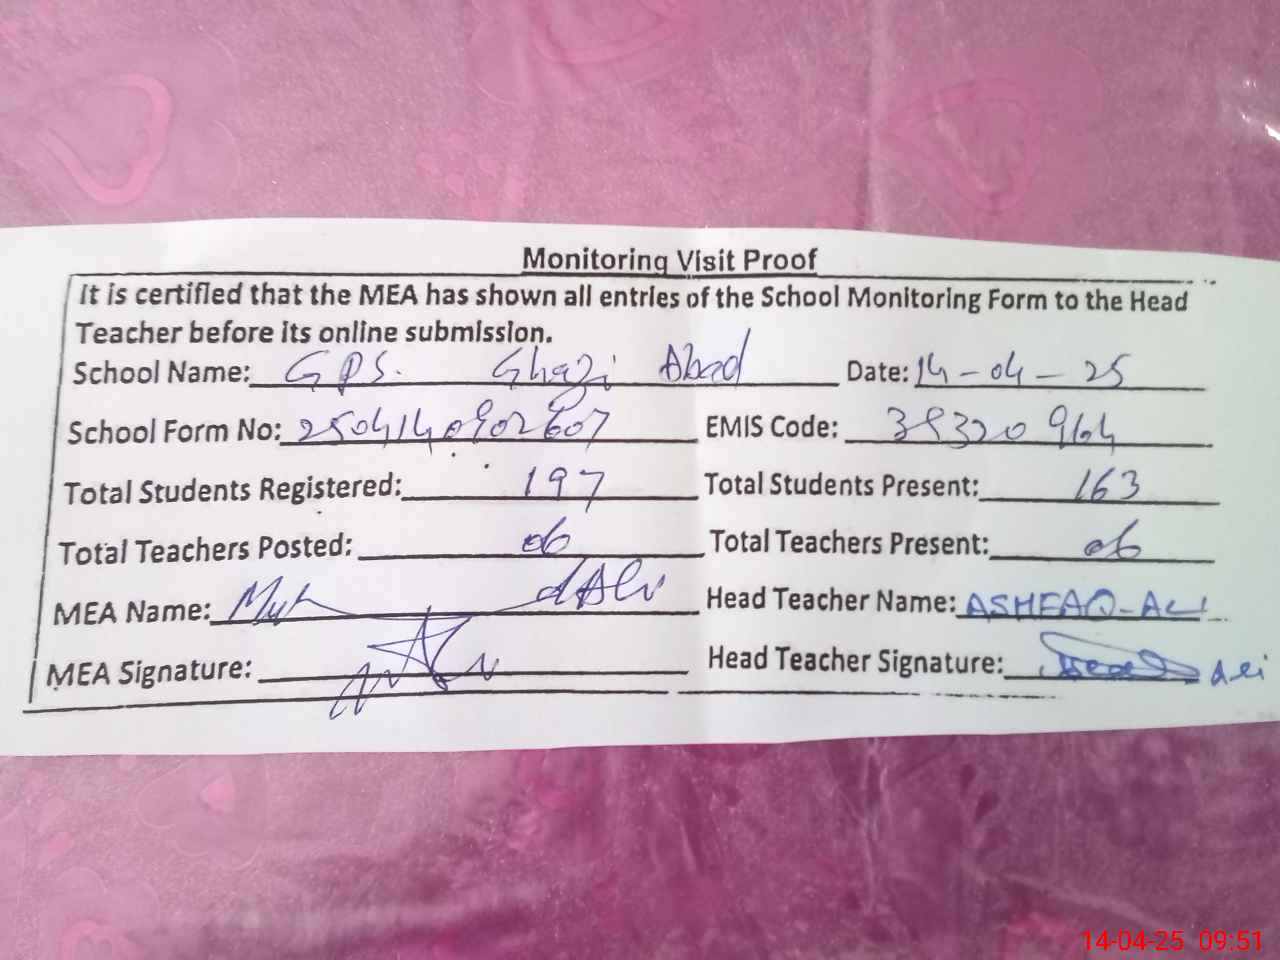 Monitoring Visit Proof
It is certified that the MEA has shown all entries of the School Monitoring Form to the Head
Teacher before its online submission.
School Name: GPS. Ghazi Abad Date: 14-04-25
School Form No: 2504140902607 EMIS Code: 39320964
Total Students Registered: 197 Total Students Present: 163
Total Teachers Posted: 06 Total Teachers Present: 06
MEA Name: Head Teacher Name: ASHFAQ-ALI
MEA Signature: Head Teacher Signature: Ali
14-04-25 09:51